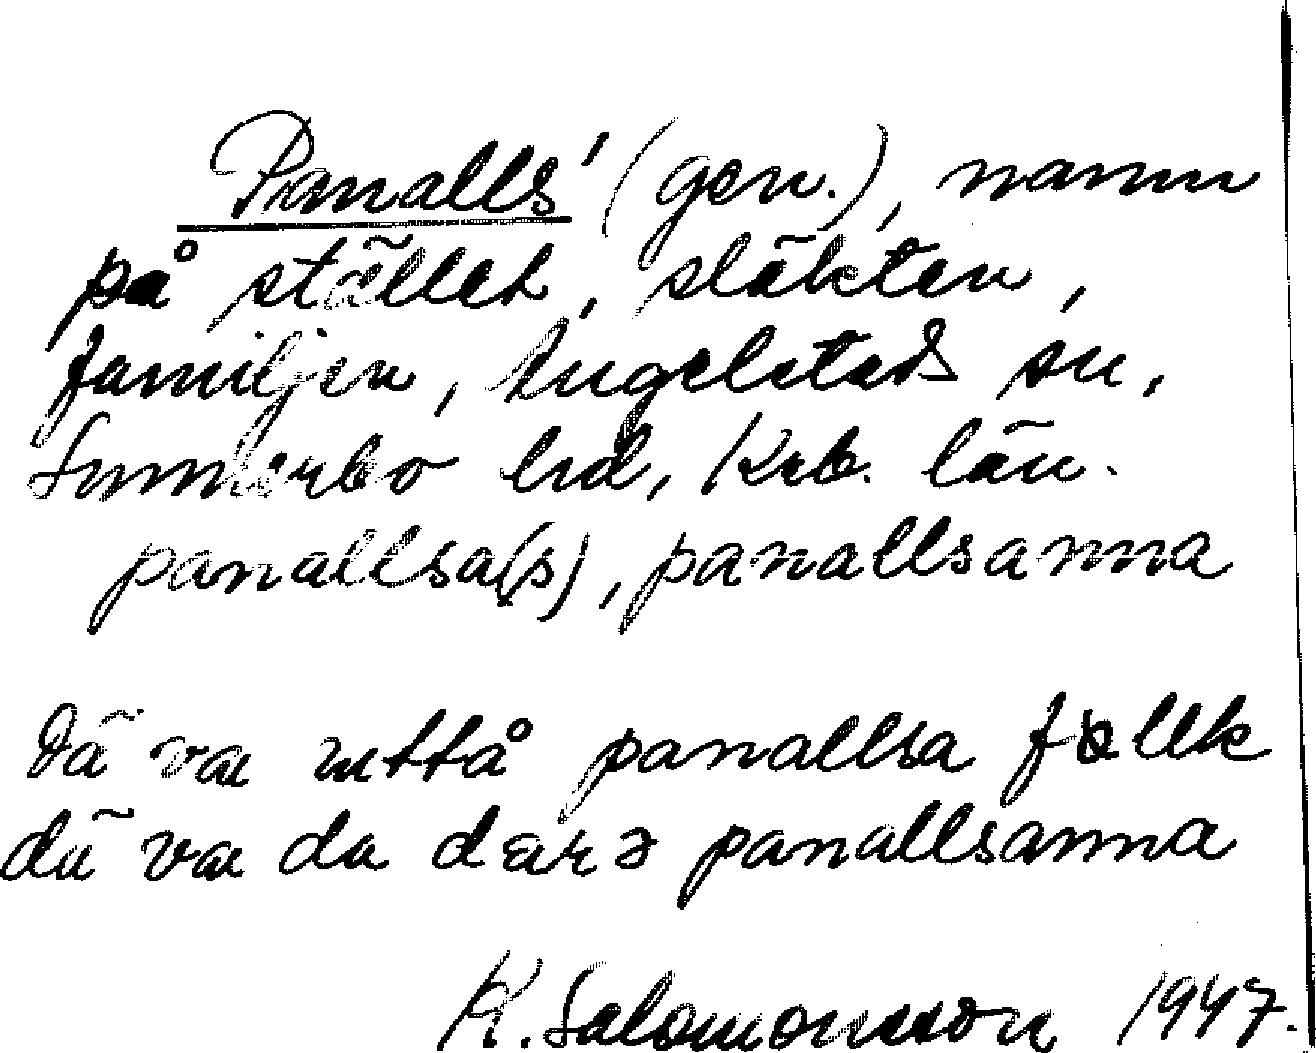 Panalls' (gen.), namn
på stället, släkten,
familjen, Angelstads sn,
Sunnerbo hd, Krb. län.
panallsa(s), panallsanna
dä va attå panallsa fållk
dä va da dærə panallsanna
K. Salomonsson 1947.